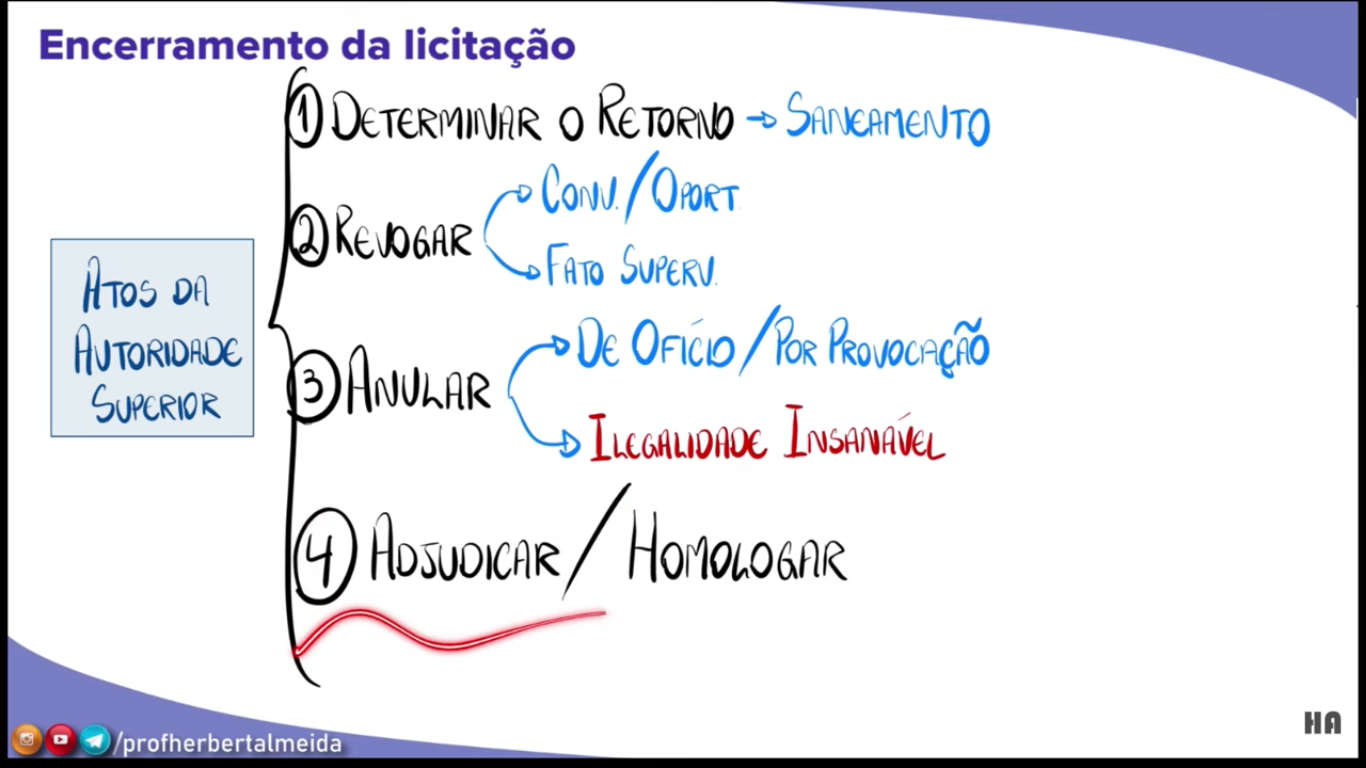 Encerramento da licitação
ATOS DA
AUTORIDADE
SUPERIOR
1 DETERMINAR O RETORNO → SANEAMENTO
2 REVOGAR
CONV. / OPORT.
FATO SUPERV.
3 ANULAR
DE OFÍCIO / POR PROVOCAÇÃO
ILEGALIDADE INSANÁVEL
4 ADJUDICAR / HOMOLOGAR
/profherbertalmeida
HA